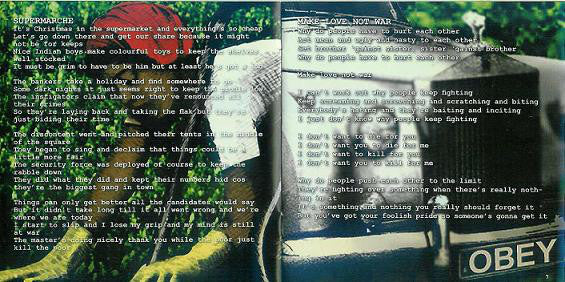 SUPERMARCHE
It's Christmas in the supermarket and everything's so cheap
Let's go down there and get our share because it might
not be for keeps
Nice Indian boys make colourful toys to keep the shelves
well stocked
It must be grim to have to be him but at least he's got a
The bankers take a holiday and find somewhere to go
Some dark nights at just seems right to keep the
The instigators claim that now they've resourced all
their crimes
So they're laying back and taking the flak but they're
just biding their time
The discontent went and pitched their tents in the middle
of the square
They began to sing and declaim that things could be a
little more fair
The security force was deployed of course to keep the
rabble down
They did what they did and kept their numbers hid cos
they're the biggest gang in town
Things can only get better all the candidates would say
But it didn't take long till it all went wrong and we're
where we are today
I start to slip and I lose my grip and my mind is still
at war
The master's doing nicely thank you while the poor just
kill the poor
MAKE LOVE NOT WAR
Why do people have to hurt each other
Get mean and ugly and nasty to each other
Set brother 'gainst sister, sister 'gainst brother
Why do people have to hurt each other
Make love not war
I can't work out why people keep fighting
Keep screaming and screaming and scratching and biting
Everybody's hating and they're baiting and inciting
I just don't know why people keep fighting
I don't want to die for you
I don't want you to die for me
I don't want to kill for you
I don't want you to kill for me
Why do people push each other to the limit
They're fighting over something when there's really noth-
ing in it
It's something and nothing you really should forget it
But you've got your foolish pride so someone's gonna get it
OBEY